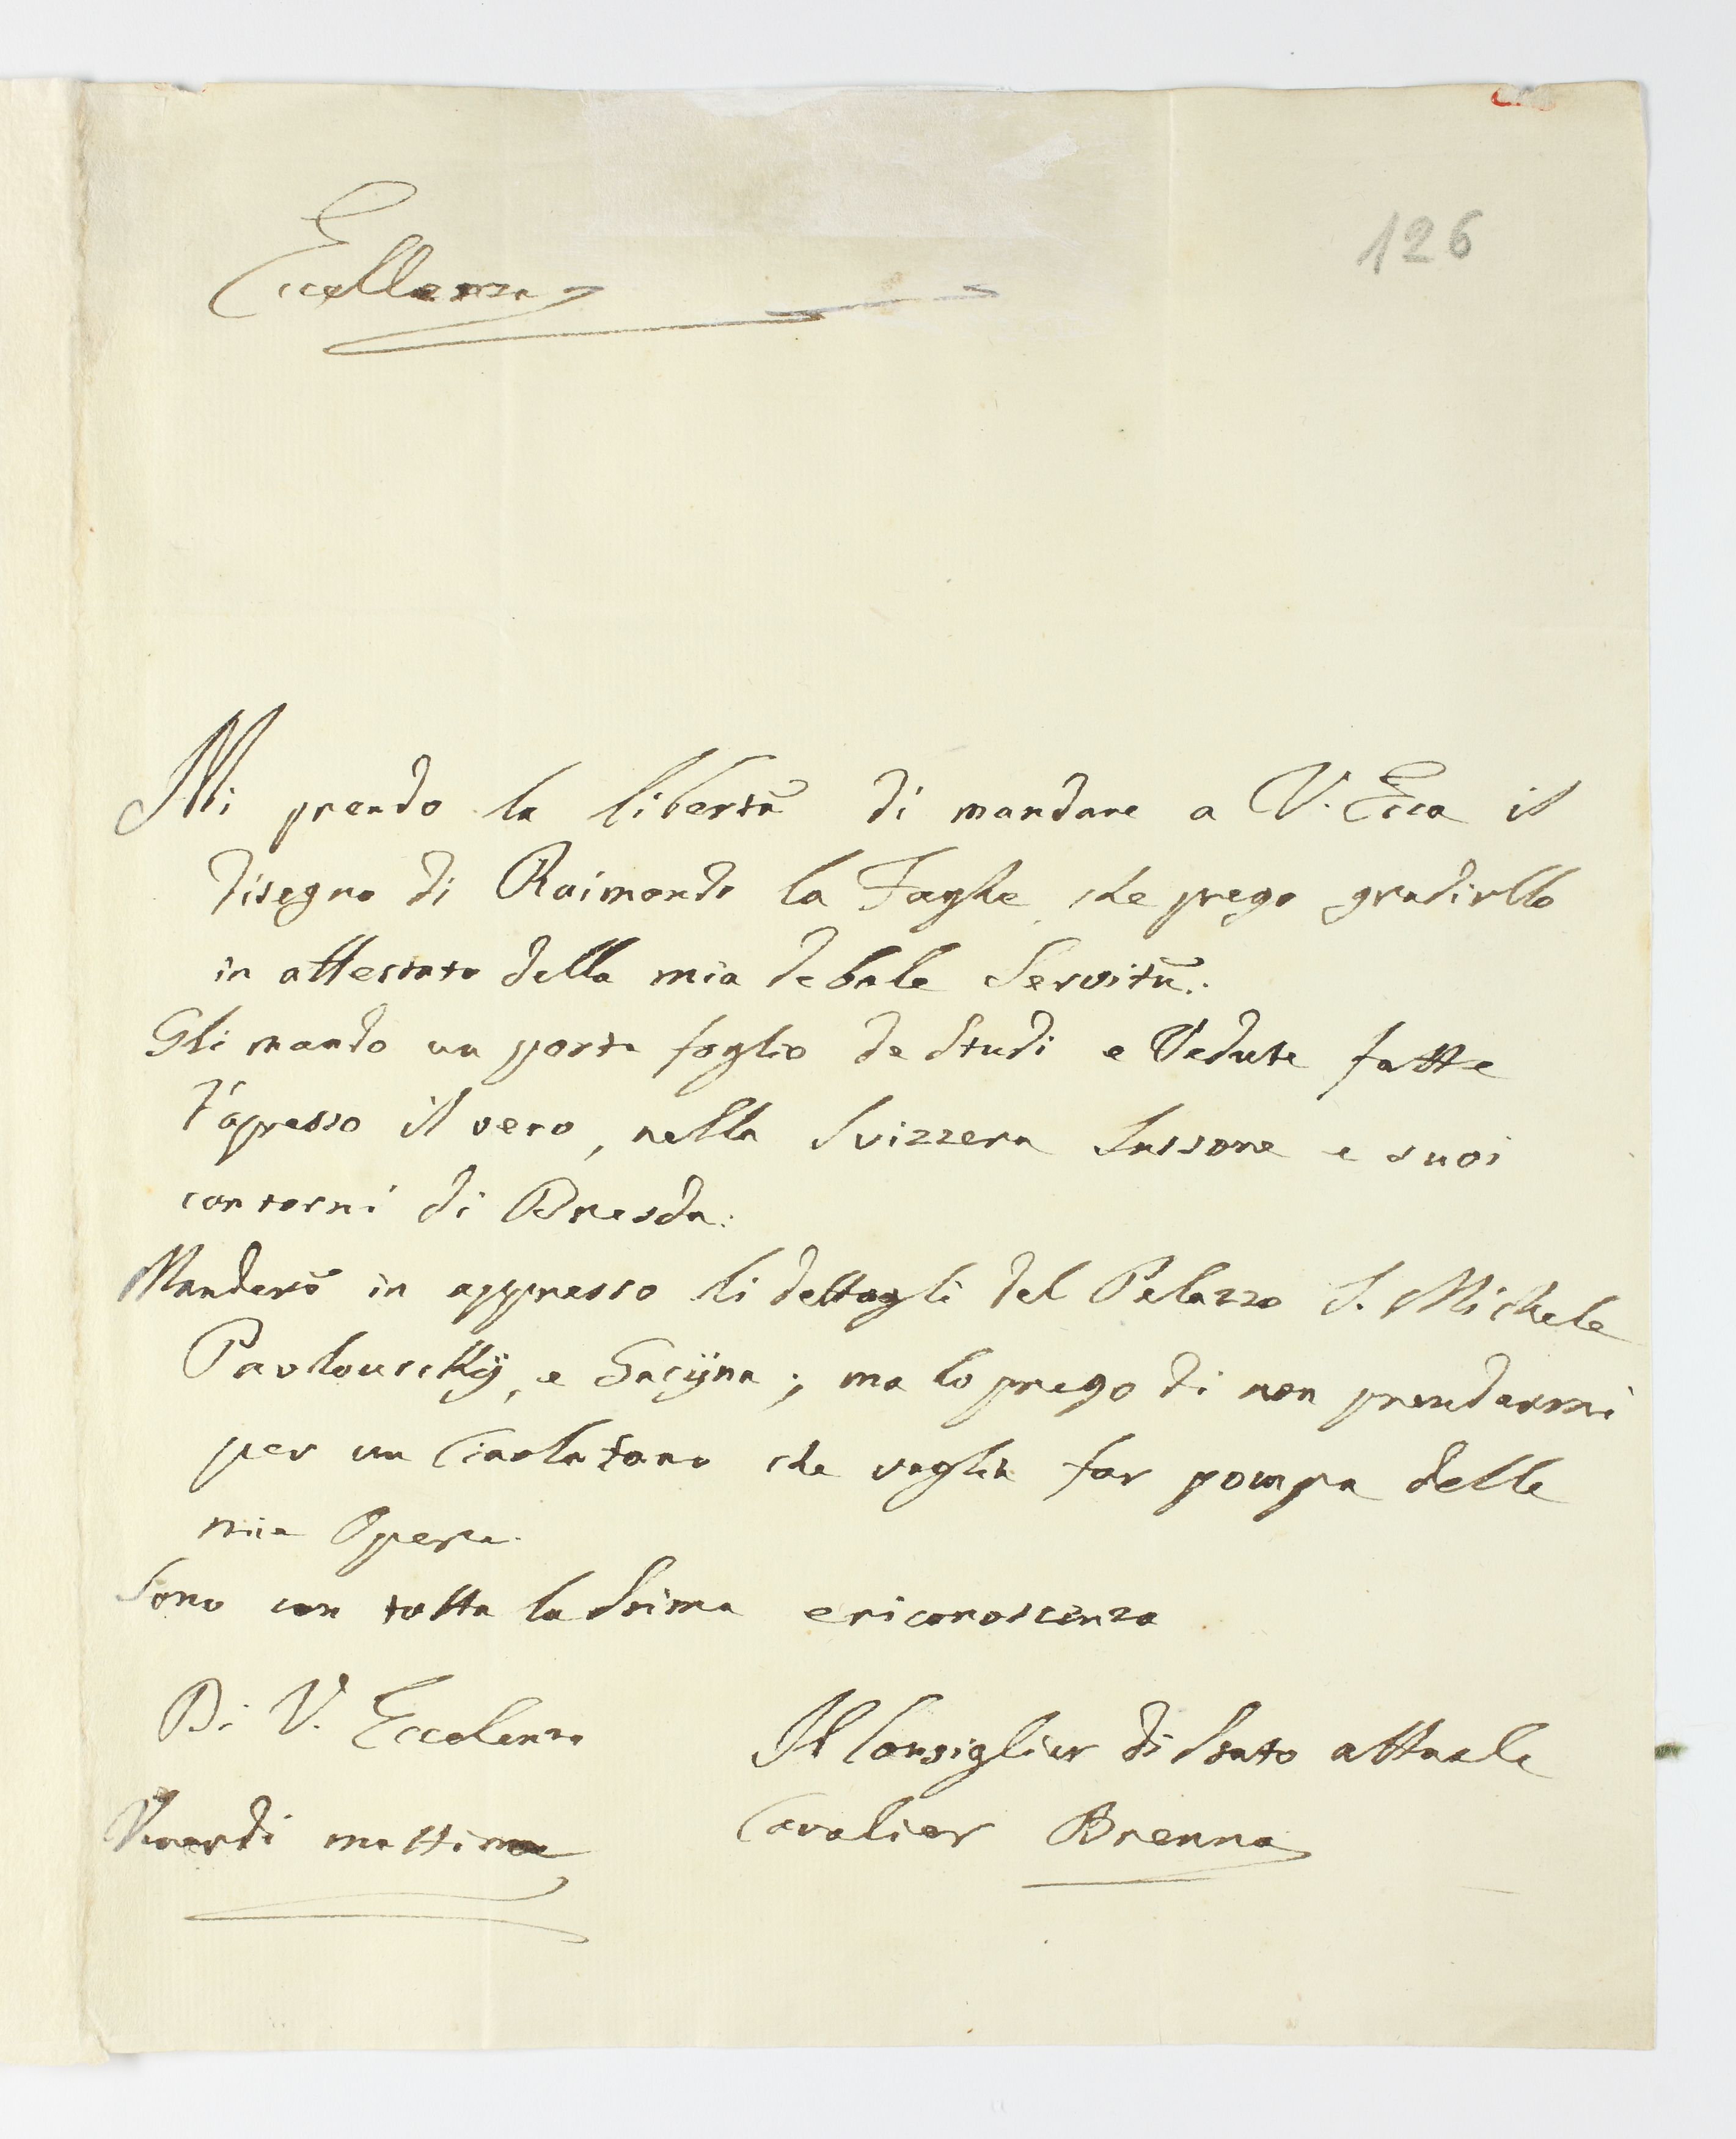 126
Eccellenza
Mi prendo la libertà di mandare a V. Ecca il
disegno di Raimondo la Faghe, che prego gradirllo
in attestato della mia debole Servitù.
Gli mando un porta foglio de Studi e Vedute fatte
d'apresso il vero, nella Svizzera Sassone e suoi
contorni di Dresda.
Manderò in appresso li dettagli del Palazzo S. Michele
Pavlouscky, e Gacÿna; ma lo prego di non prendermi
per un Ciarlatano che voglia far pompa delle
mie Opere.
Sono con tutta la Stima e riconoscenza
Di V. Eccelenza
Il Consiglier di Stato attuale
Cavalier Brenna
Venerdi mattina